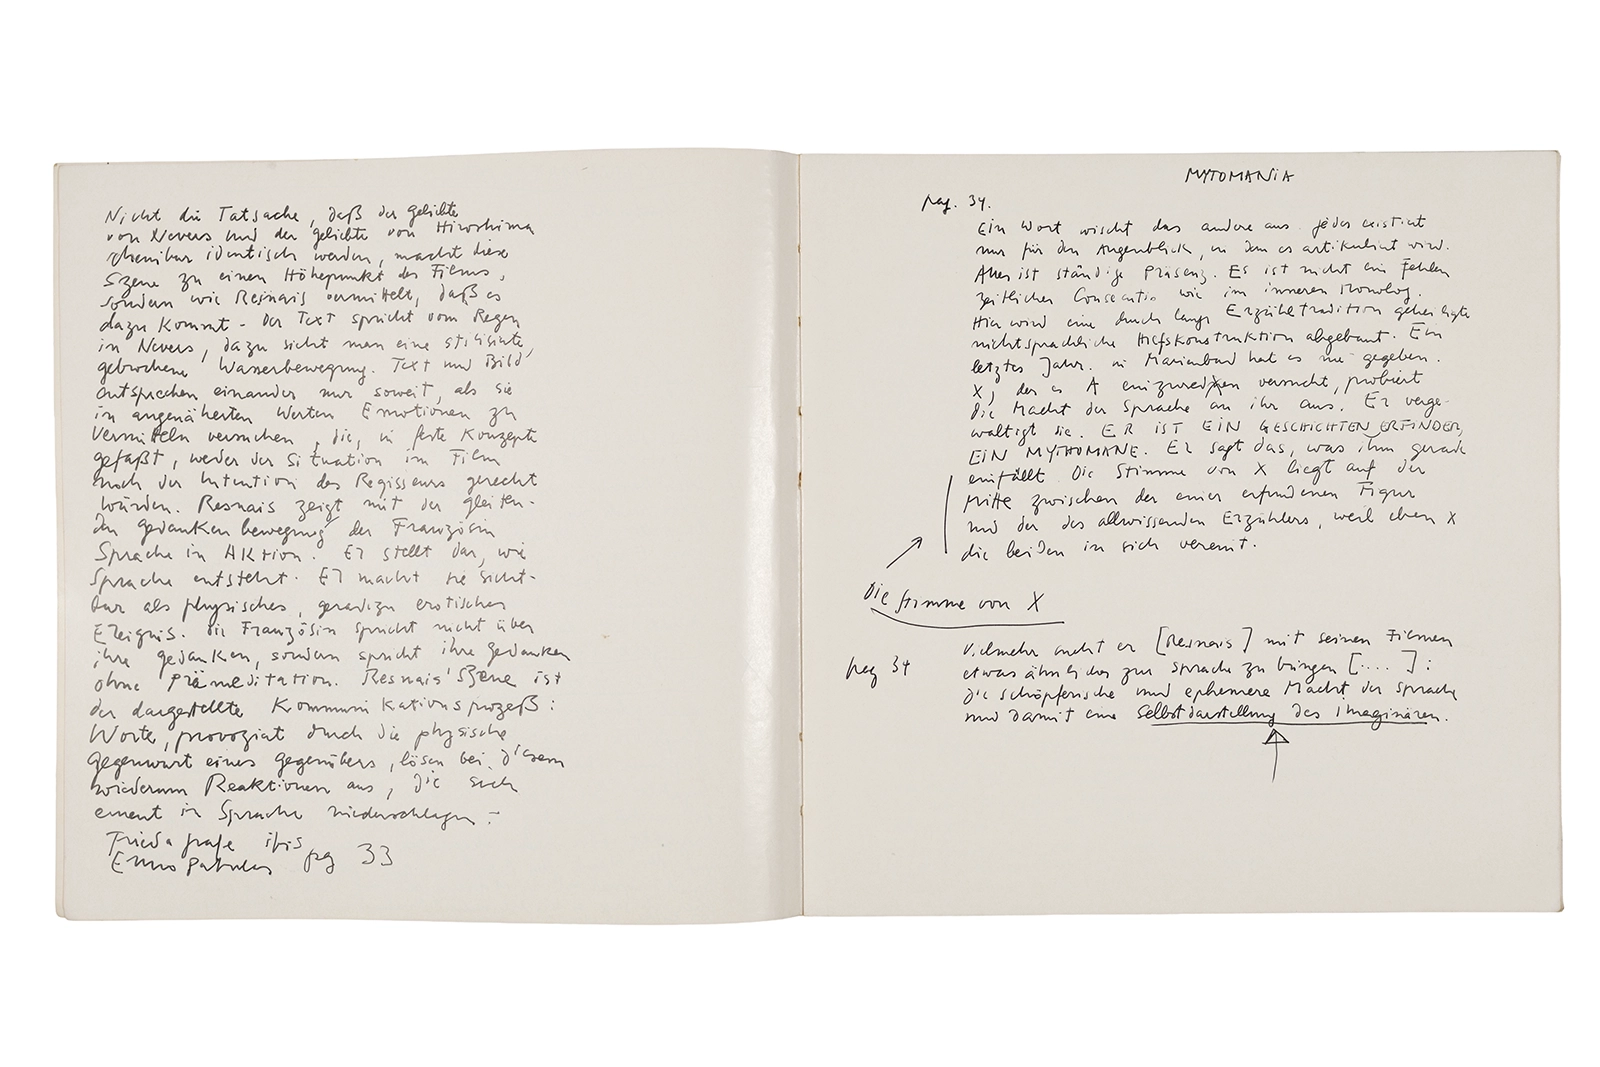 Nicht die Tatsache, daß der geliebte
von Nevers und der geliebte von Hiroshima
scheinbar identisch werden, macht diese
Szene zu einem Höhepunkt des Films,
sondern wie Resnais vermittelt, daß es
dazu kommt - Der Text spricht vom Regen
in Nevers, dazu sieht man eine stilisierte,
gebrochene Wasserbewegung. Text und Bild
entsprechen einander nur soweit, als sie
in angenäherten Werten Emotionen zu
vermitteln versuchen, die, in feste Konzepte
gefaßt, weder der Situation im Film
noch der Intention des Regisseurs gerecht
würden. Resnais zeigt mit der gleiten-
den gedankenbewegung der Französin
Sprache in Aktion. Er stellt dar, wie
Sprache entsteht. Er macht sie sicht-
bar als physisches, geradezu erotisches
Ereignis. Die Französin spricht nicht über
ihre gedanken, sondern spricht ihre gedanken
ohne Prämeditation. Resnais' Szene ist
der dargestellte Kommunikationsprozeß:
Worte, provoziert durch die physische
gegenwart eines gegenübers, lösen bei diesem
wiederum Reaktionen aus, die sich
erneut in Sprache niederschlagen -
Frieda grafe ibis
Enno Patalas pg 33
MYTOMANIA
pag. 34.
Ein Wort wischt das andere aus. jedes existiert
nur für den Augenblick, in dem es artikuliert wird.
Alles ist ständige Präsenz. Es ist nicht ein Fehlen
zeitlicher Consecutio wie im inneren Monolog.
Hier wird eine durch lange Erzähltradition geheiligte
nichtsprachliche Hilfskonstruktion abgebaut. Ein
letztes Jahr in Marienbad hat es nie gegeben.
X, der es A einzureden versucht, probiert
die Macht der Sprache an ihr aus. Er verge-
waltigt sie. ER IST EIN GESCHICHTEN ERFINDER,
EIN MYTHOMANE. Er sagt das, was ihm gerade
einfällt Die Stimme von X liegt auf der
Mitte zwischen der einer erfundenen Figur
und der des allwissenden Erzählers, weil eben X
die beiden in sich vereint.
Die Stimme von X
pag 34
Vielmehr sucht er [Resnais] mit seinen Filmen
etwas ähnliches zur Sprache zu bringen [....]:
die schöpferische und ephemere Macht der Sprache
und damit eine Selbstdarstellung des Imaginären.